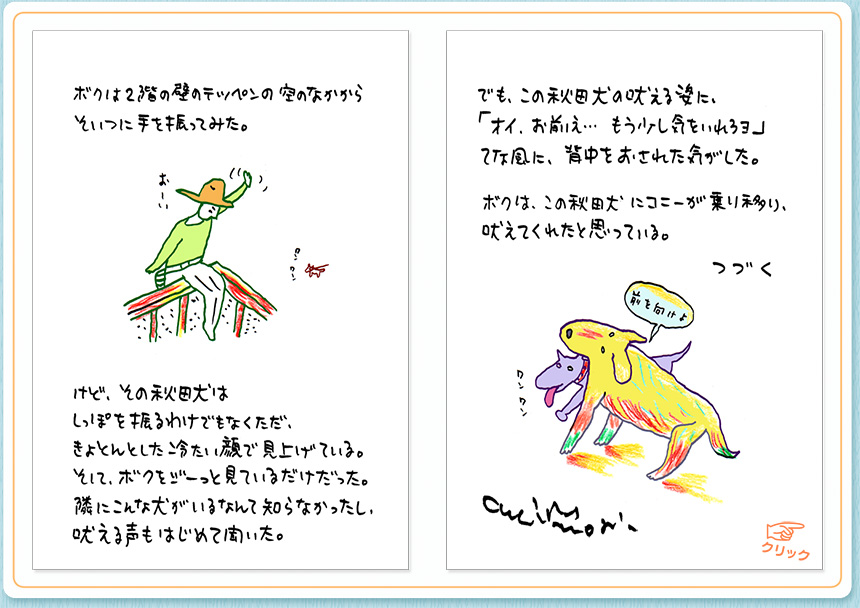 ボクは2階の壁のテッペンの空のなかから
そいつに手を振ってみた。
おーい
ワンワン
けど、その秋田犬は
しっぽを振るわけでもなくただ、
きょとんとした冷たい顔で見上げている。
そして、ボクをジーっと見ているだけだった。
隣にこんな犬がいるなんて知らなかったし、
吠える声もはじめて聞いた。
でも、この秋田犬の吠える姿に、
「オイ、お前え… もう少し気をいれろヨ」
てな風に、背中をおされた気がした。
ボクは、この秋田犬にコニーが乗り移り、
吠えてくれたと思っている。
つづく
前を向けよ
ワンワン
クリック